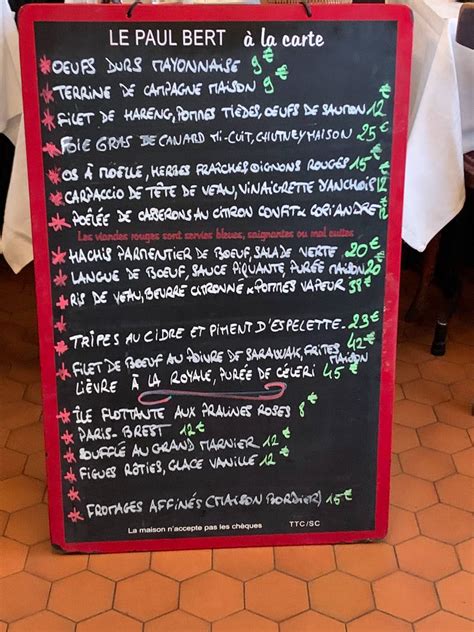 LE PAUL BERT à la carte
* OEUFS DURS MAYONNAISE 9€
* TERRINE DE CAMPAGNE MAISON 9€
* FILET DE HARENG, POMMES TIÈDES, OEUFS DE SAUMON 12€
FOIE GRAS DE CANARD MI-CUIT, CHUTNEY MAISON 25€
* OS À MOELLE, HERBES FRAÎCHES OIGNONS ROUGES 15€
* CARPACCIO DE TÊTE DE VEAU, VINAIGRETTE D'ANCHOIS 12€
* POÊLÉE DE CABERONS AU CITRON CONFIT & CORIANDRE 12€
Les viandes rouges sont servies bleues, saignantes ou mal cuites
* HACHIS PARMENTIER DE BOEUF, SALADE VERTE 20€
* LANGUE DE BOEUF, SAUCE PIQUANTE, PURÉE MAISON 20€
* RIS DE VEAU, BEURRE CITRONNÉ & POMMES VAPEUR €
* TRIPES AU CIDRE ET PIMENT D'ESPELETTE. 23€
* FILET DE BOEUF AU POIVRE DE SARAWAK, FRITES MAISON 42€
LIÈVRE À LA ROYALE, PURÉE DE CÉLERI 45€
* ÎLE FLOTTANTE AUX PRALINES ROSES 8€
* PARIS-BREST 12€
* SOUFFLÉ AU GRAND MARNIER 12€
* FIGUES RÔTIES, GLACE VANILLE 12€
* FROMAGES AFFINÉS (MAISON BORDIER) 15€
La maison n'accepte pas les chèques TTC/SC